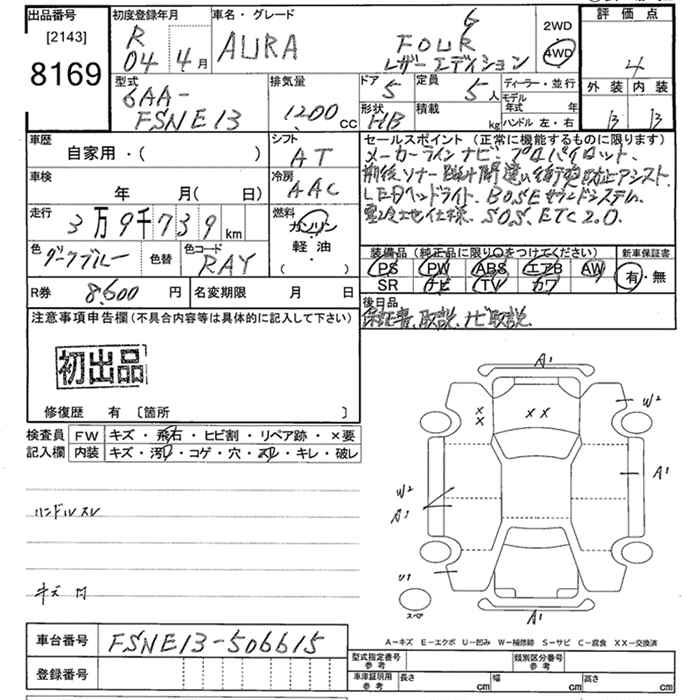 出品番号
[2143]
8169
初度登録年月
R
04 4月
車名・グレード
AURA
G
FOUR
レザーエディション
2WD
4WD
評価点
4
外装 内装
B B
型式
6AA-
FSNE13
排気量
1200 cc
ドア
5
定員
5人
形状
HB
積載
kg
ディーラー・並行
モデル年式 年
ハンドル 左・右
車歴
自家用・( )
シフト
AT
車検
年 月( 日)
冷房
AAC
走行
3万9千739 km
燃料
ガソリン
軽油
( )
色
ダークブルー
色替
色コード
RAY
R券 8,600 円
名変期限 月 日
セールスポイント (正常に機能するものに限ります)
メーカーラインナビ、プロパイロット、
前後ソナー 踏み間違い衝突防止アシスト
LEDヘッドライト、BOSEサウンドシステム、
寒冷地仕様、SOS、ETC2.0、
装備品 (純正品に限り〇をつけてください)
新車保証書
PS PW ABS エアB AW
SR ナビ TV カワ
有・無
後日品
保証書、取説、ナビ取説
注意事項申告欄(不具合内容等は具体的に記入して下さい)
初出品
修復歴 有 〔箇所 〕
検査員
記入欄
FW キズ・飛石・ヒビ割・リペア跡・×要
内装 キズ・汚レ・コゲ・穴・スレ・キレ・破レ
ハンドルスレ
キズ 凹
A1
W2
A1
W2
A1
U1
A1
スペア
A-キズ E-エクボ U-凹み W-補修跡 S-サビ C-腐食 XX-交換済
車台番号
FSNE13-506615
登録番号
型式指定番号
参考
類別区分番号
参考
車庫証明用
参考
長さ cm
幅 cm
高さ cm